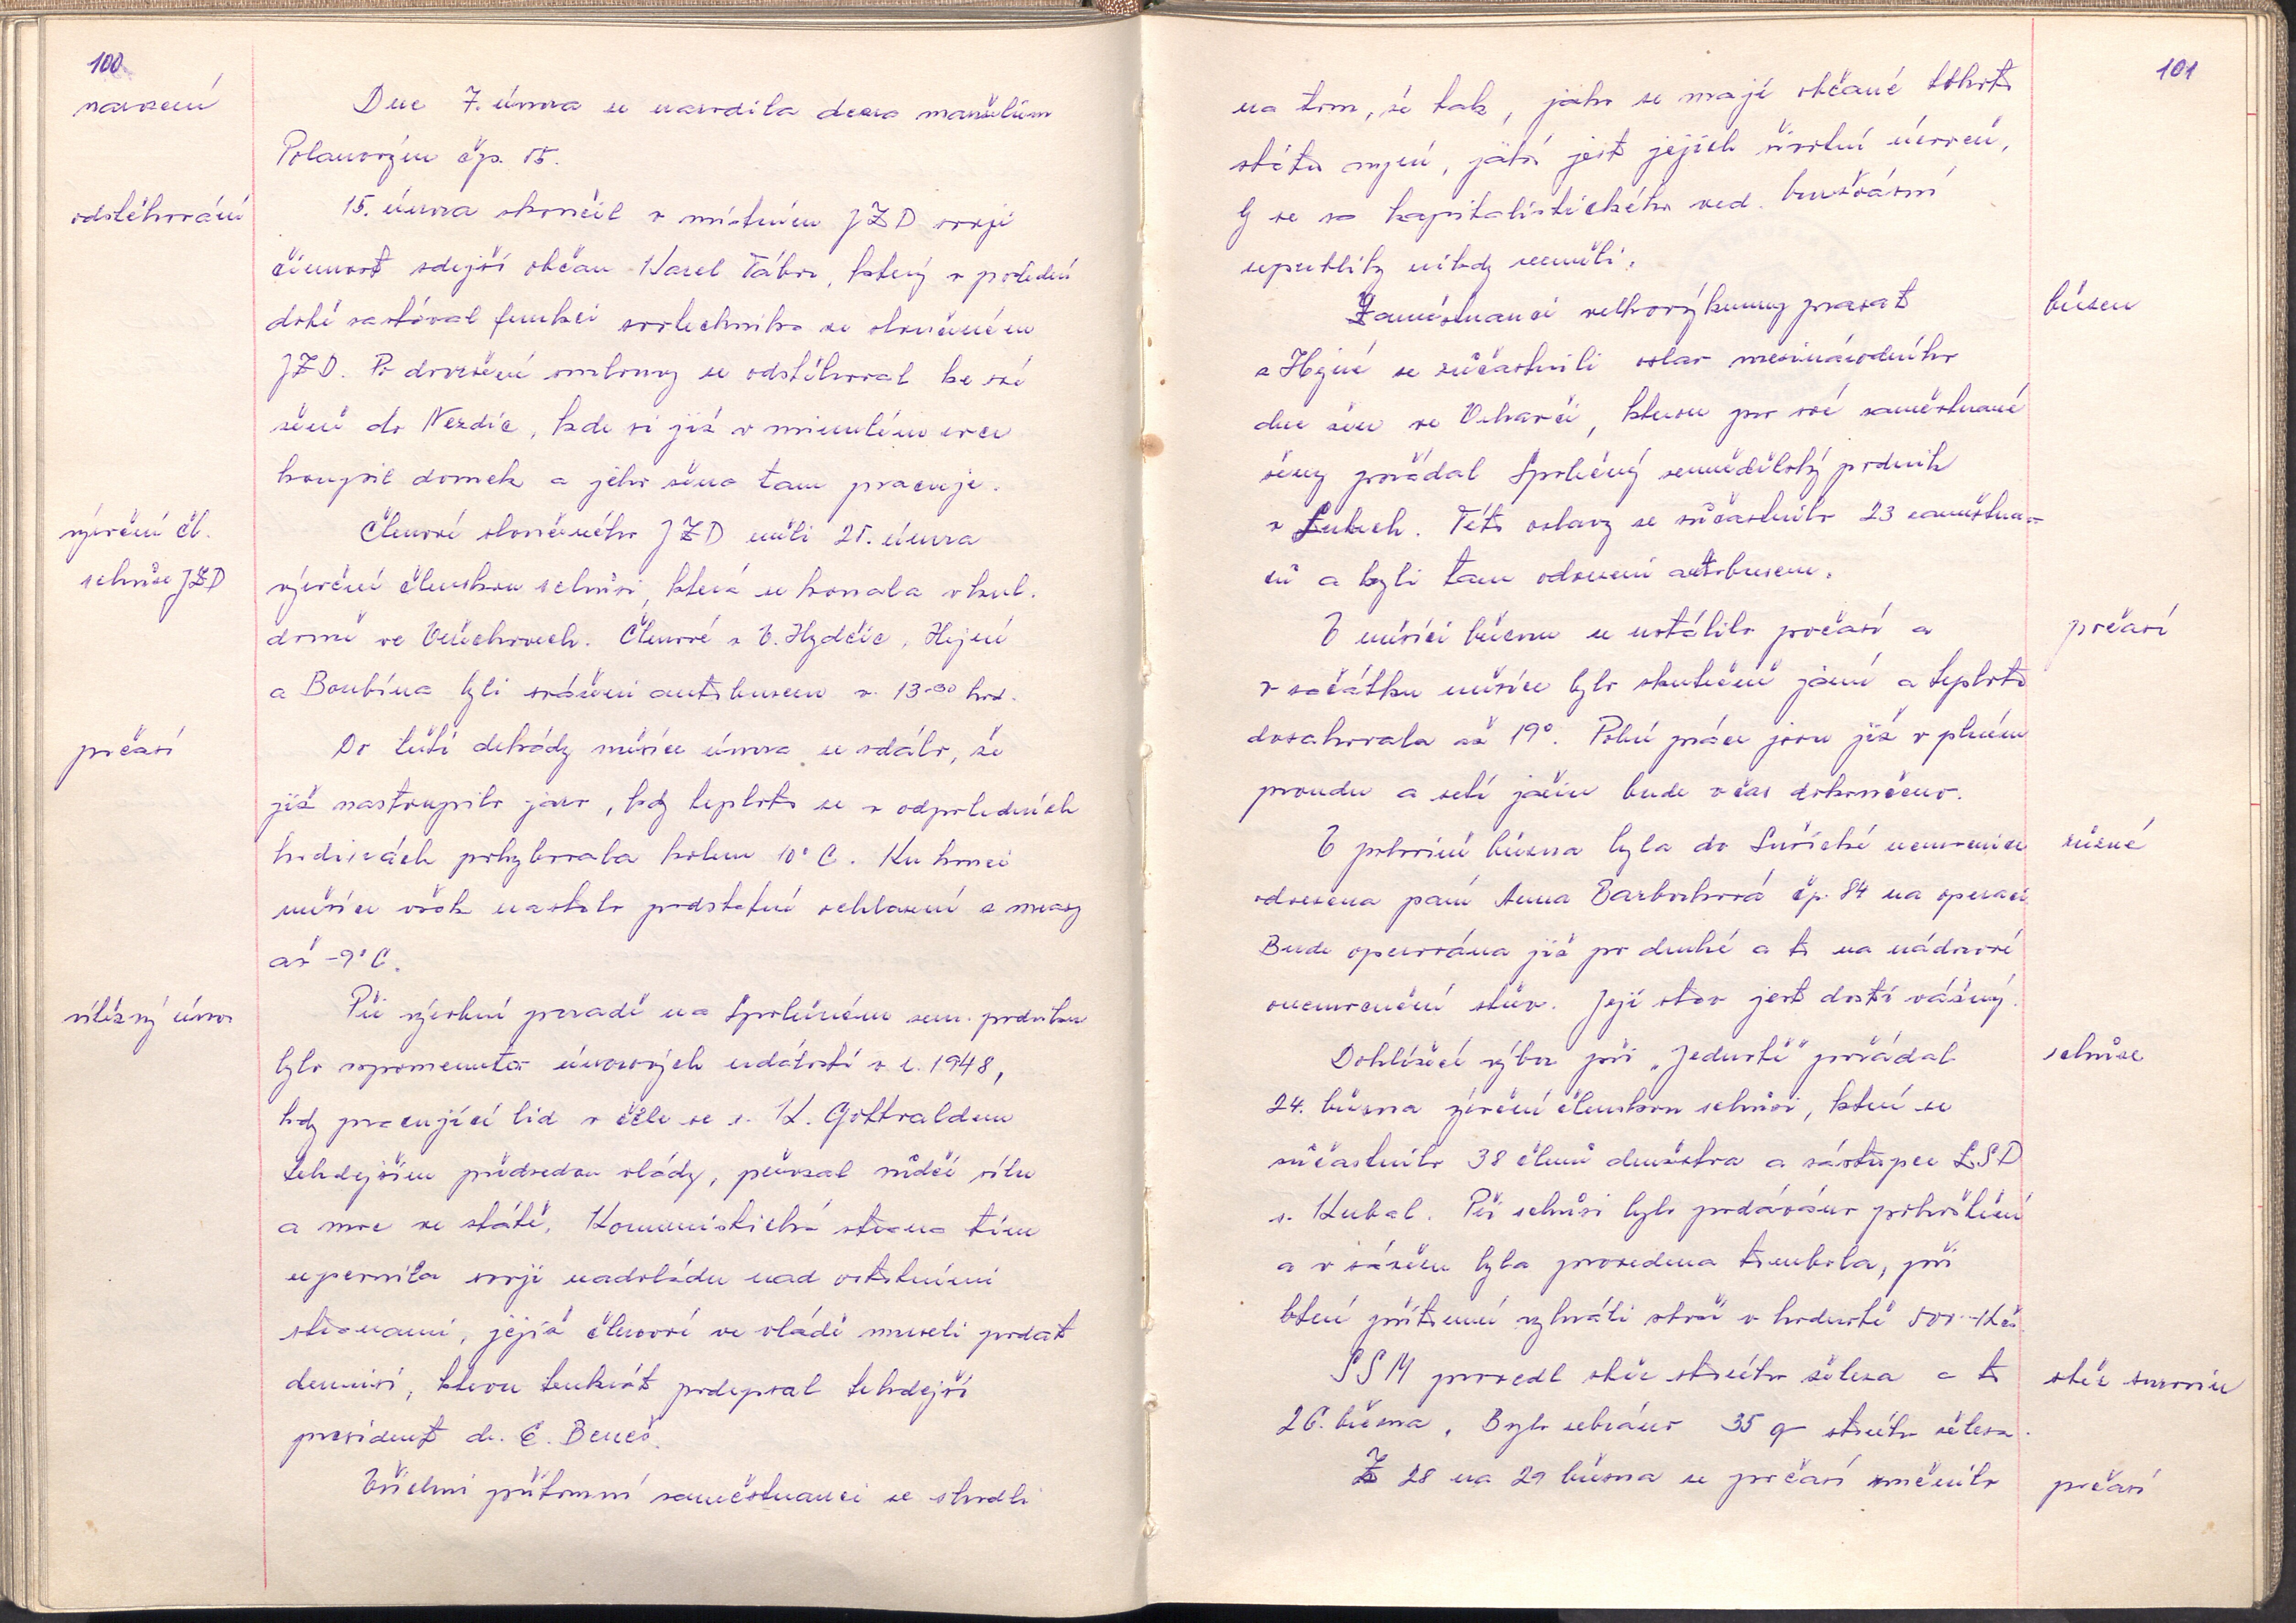 100
narození
Dne 7. února se narodila dcera manželům
Polanovým čp. 55.
odstěhování
15. února skončil v místním JZD svoji
činnost zdejší občan Karel Tábor, který v poslední
době zastával funkci zootechnika ve sloučeném
JZD. Po dovršení smlouvy se odstěhoval ke své
ženě do Nezdic, kde si již v minulém roce
koupil domek a jeho žena tam pracuje.
výroční čl.
schůze JZD
Členové sloučeného JZD měli 25. února
výroční členskou schůzi, která se konala v kul.
domě ve Velichovech. Členové z V. Hydčic, Hejné
a Boubína byli sváženi autobusem v 13.30 hod.
počasí
Do třetí dekády měsíce února se zdálo, že
již nastoupilo jaro, kdy teplota se v odpoledních
hodinách pohybovala kolem 10° C. Ku konci
měsíce však nastalo podstatné ochlazení a mrazy
až -9° C.
vítězný únor
Při výrobní poradě na Společném zem. podniku
bylo vzpomenuto únorových událostí v r. 1948,
kdy pracující lid v čele se s. K. Gottwaldem
tehdejším předsedou vlády, převzal vůdčí sílu
a moc ve státě. Komunistická strana tím
upevnila svoji nadvládu nad ostatními
stranami, jejíž členové ve vládě museli podat
demisi, kterou tenkrát podepsal tehdejší
president dr. E. Beneš.
Všichni přítomní zaměstnanci se shodli
101
na tom, že tak, jako se mají občané tohoto
státu nyní, jaká jest jejich životní úroveň,
by se za kapitalistického ved. buržoasní
republiky nikdy neměli.
březen
Zaměstnanci velkovýkrmny prasat
z Hejné se zúčastnili oslav mezinárodního
dne žen ve Zvíkovci, kterou pro své zaměstnané
ženy pořádal Společný zemědělský podnik
v Lubech. Této oslavy se zúčastnilo 23 zaměstnan-
ců a byli tam odvezeni autobusem.
počasí
V měsíci březnu se ustálilo počasí a
v začátku měsíce bylo skutečně jarní a teplota
dosahovala až 19°. Polní práce jsou již v plném
proudu a setí jařin bude včas dokončeno.
různé
V polovině března byla do Sušické nemocnice
odvezena paní Anna Barbochová čp. 84 na operaci.
Bude operována již po druhé a to na nádorové
onemocnění střev. Její stav jest dosti vážný.
schůze
Dohlížecí výbor při „Jednotě" pořádal
24. března výroční členskou schůzi, které se
zúčastnilo 38 členů družstva a zástupce LSD
s. Kubal. Při schůzi bylo podáváno pohoštění
a v závěru byla provedena tombola, při
které přítomní vyhráli zboží v hodnotě 500.-Kčs.
sběr surovin
SSM provedl sběr starého železa a to
26. března. Bylo sebráno 35 q starého železa.
počasí
Z 28 na 29 března se počasí změnilo